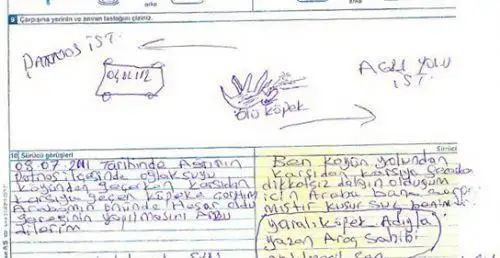 arka
arka
9 Çarpışma yerinin ve anının taslağını çiziniz.
PATNOS İST.
04 U 112
AĞRI YOLU
İST.
ölü köpek
10 Sürücü görüşleri
08.07.2011 Tarihinde Ağrının
Patnos ilçesinde oğlaksuyu
köyünden geçerken karşıdan
karşıya geçen köpeke çarptım
Arabamın önünde Hasar oldu
Gereğinin yapılmasını Arzu
ederim
Ben köyün yolundan
karşıdan karşıya geçerken
dikkatsiz dalgın olduğum
için Araba bana çarp-
mıştır kusur suç benim
yaralı köpek Adıyla
yazan Araç Sahibi